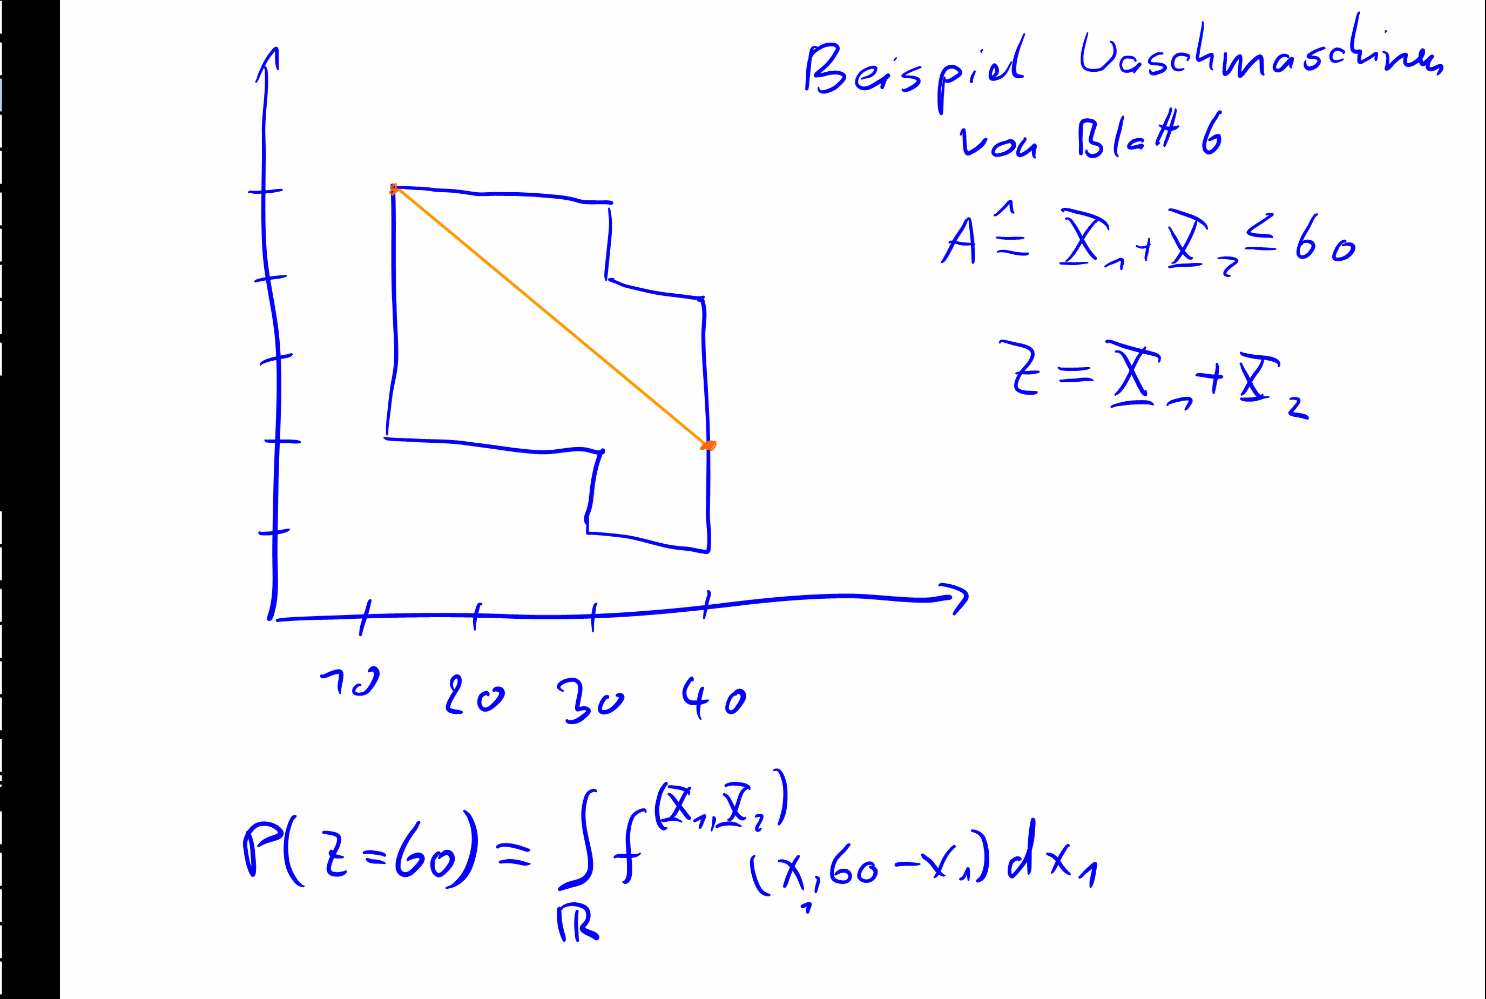 Beispiel Waschmaschinen
von Blatt 6
A ≙ X₁ + X₂ ≤ 60
Z = X₁ + X₂
10 20 30 40
P(Z=60) = ∫_ℝ f^(X₁,X₂) (x₁, 60-x₁) dx₁